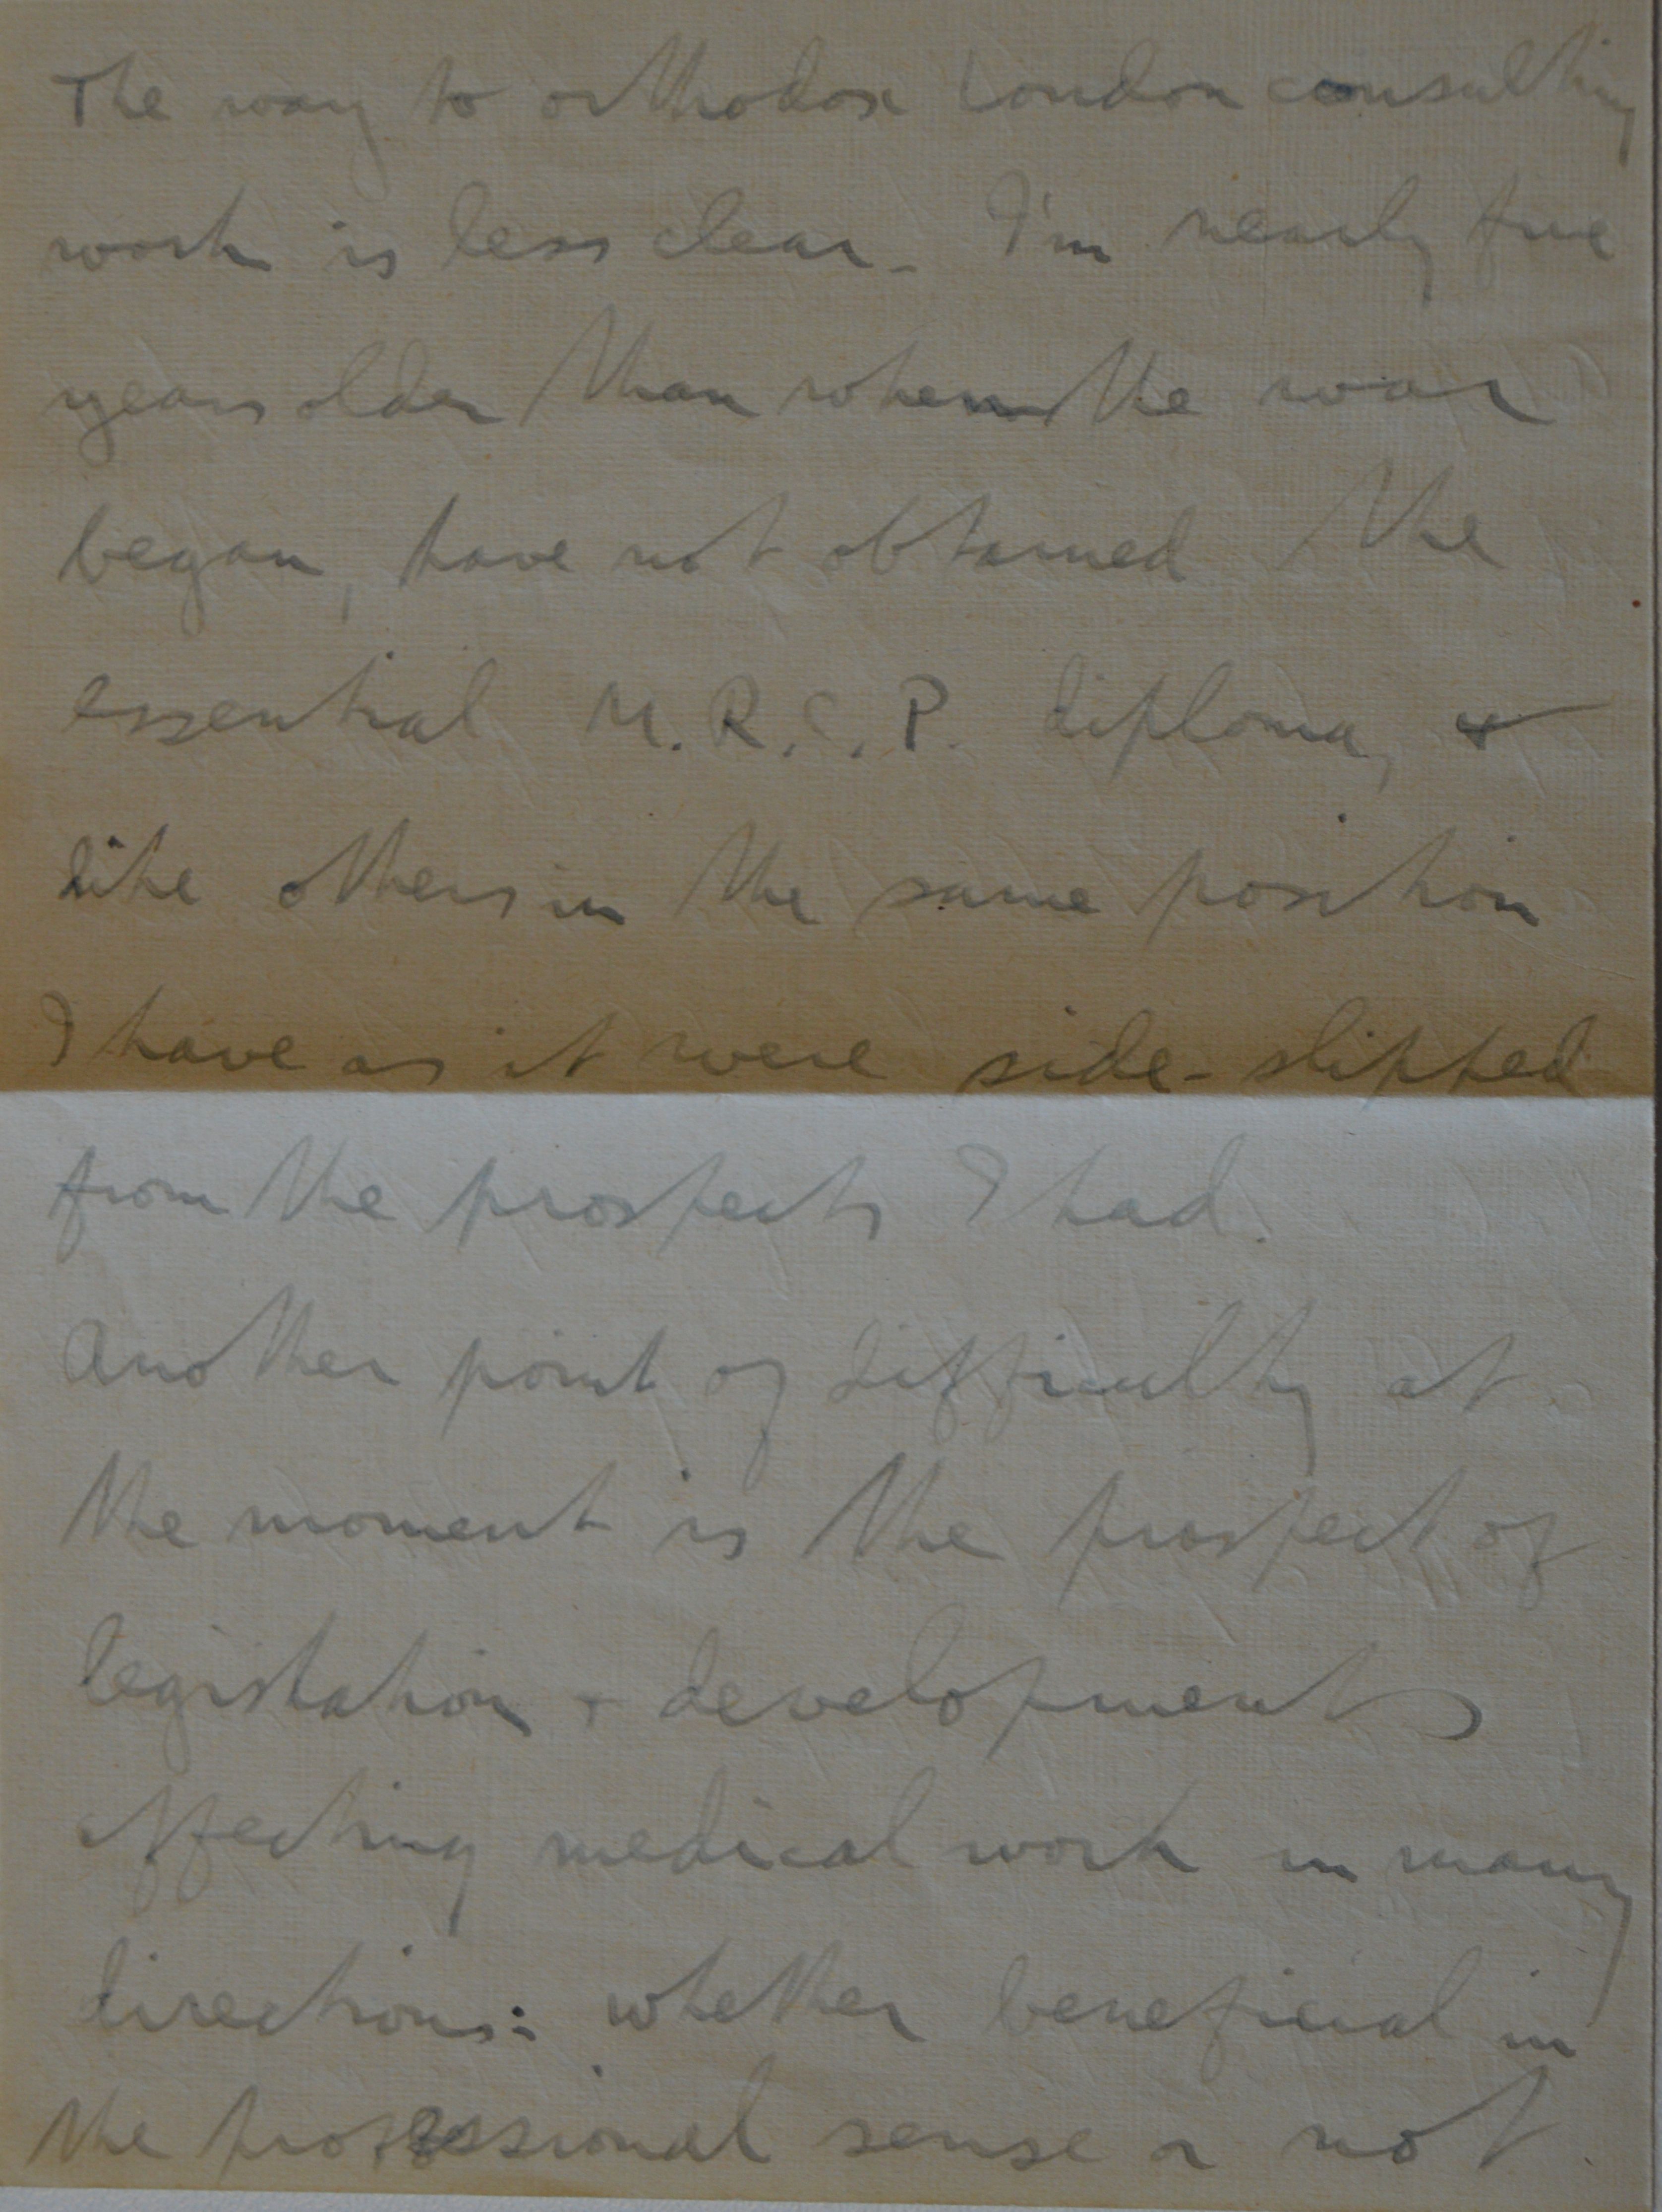 The way to orthodox London consulting
work is less clear. I'm nearly five
years older than when the war
began, have not obtained the
essential M.R.C.P. diploma, &
like others in the same position
I have as it were side-slipped
from the prospects I had.
Another point of difficulty at
the moment is the prospect of
legislation + developments
affecting medical work in many
directions: whether beneficial in
the professional sense or not.